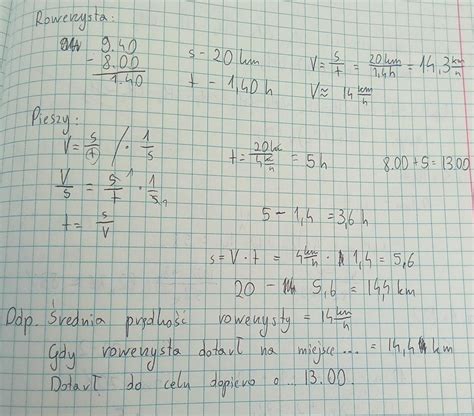 Rowerzysta:
9.40
- 8.00
1.40
s - 20 km
t - 1,40 h
V = s/t = 20 km/1,4 h = 14,3 km/h
V ≈ 14 km/h
Pieszy:
V = s/t / · 1/s
V/s = s/t · 1/s
t = s/V
t = 20 km/4 km/h = 5h
8.00 + 5 = 13.00
5 - 1,4 = 3,6 h
s = V · t = 4 km/h · 1,4 = 5,6
20 - 5,6 = 14,4 km
Odp. Średnia prędkość rowerzysty = 14 km/h
Gdy rowerzysta dotarł na miejsce ... = 14,4 km
Dotarł do celu dopiero o ... 13.00.